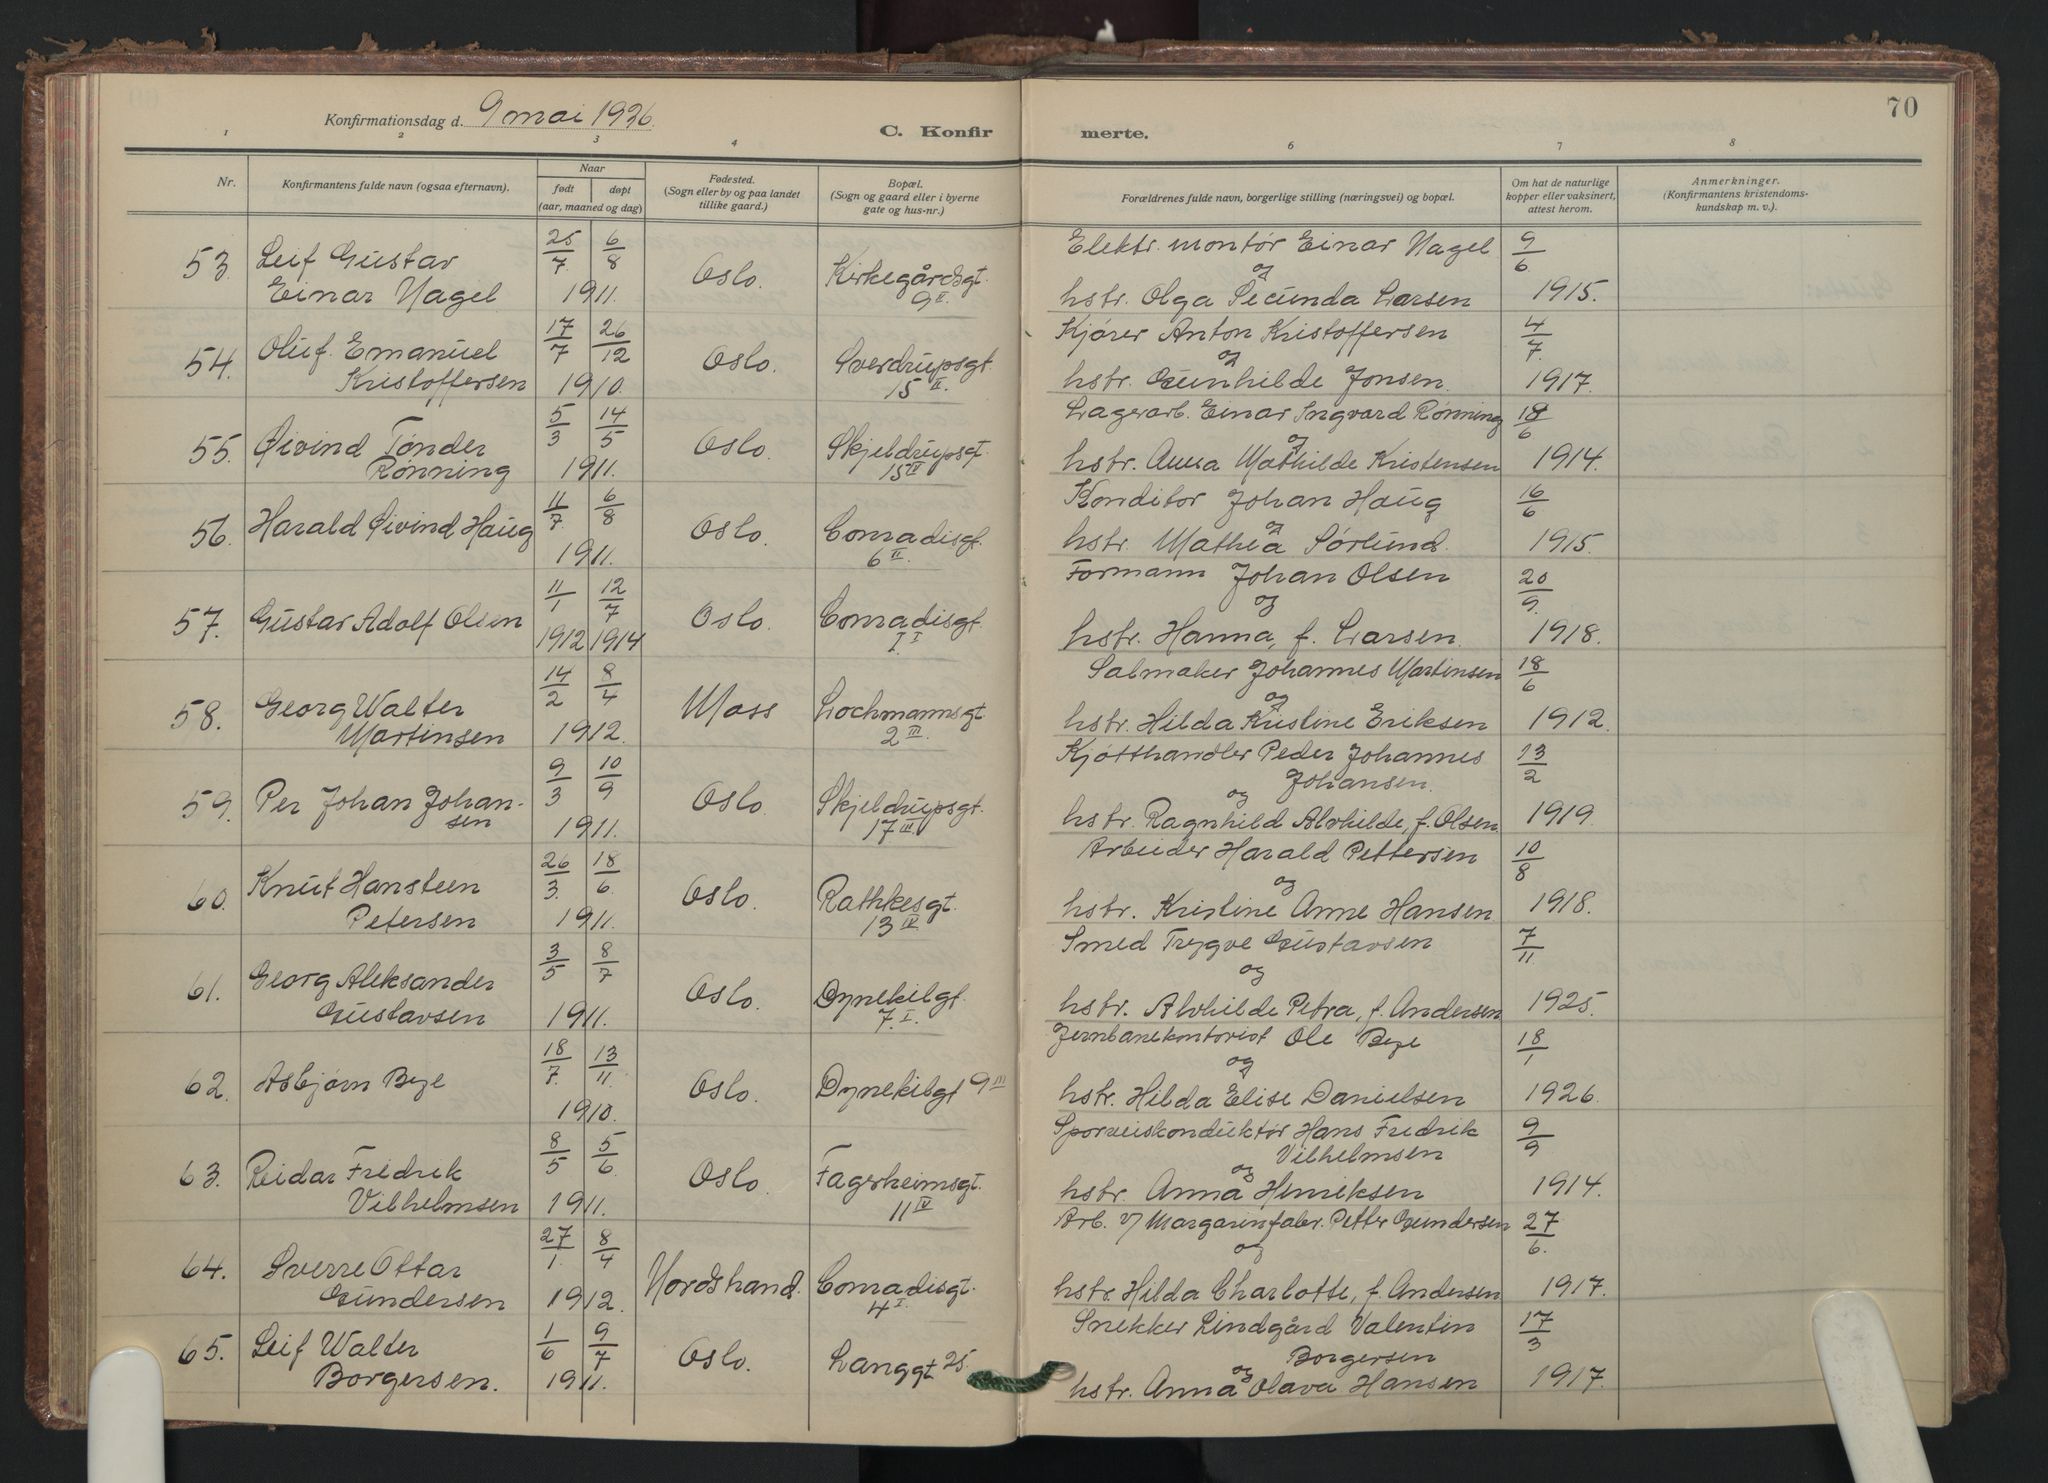 70
Konfirmationsdag d. 9 mai 1926.
C. Konfirmerte.
1 2 3 4 5 6 7 8
Nr.
Konfirmantens fulde navn (ogsaa efternavn).
Naar
født døpt
(aar, maaned og dag)
Fødested.
(Sogn eller by og paa landet
tillike gaard.)
Bopæl.
(Sogn og gaard eller i byerne
gate og hus-nr.)
Forældrenes fulde navn, borgerlige stilling (næringsvei) og bopæl.
Om hat de naturlige
kopper eller vaksinert,
attest herom.
Anmerkninger.
(Konfirmantens kristendoms-
kundskap m. v.).
53. Leif Gustav 25/7 6/8 Oslo. Kirkegårdsgt. Elektr. montør Einar Nagel 9/6
Einar Nagel 1911. 9 II. og
hstr. Olga Secunda Larsen 1915.
54. Oluf Emanuel 17/7 26/12 Oslo. Sverdrupsgt. Kjører Anton Kristoffersen 4/7
Kristoffersen 1910. 15 II. og
hstr. Gunhilde Jonsen. 1917.
55. Øivind Tønder 5/3 14/5 Oslo. Skjeldrupsgt. Lagerarb. Einar Ingvard Rønning 18/6
Rønning 1911. 15 II og
hstr. Anna Mathilde Kristensen 1914.
56. Harald Øivind Haug 11/7 6/8 Oslo. Conradisgt. Konditor Johan Haug 16/6
1911. 6 II. og
hstr. Mathea Sørlund. 1915.
57. Gustav Adolf Olsen 11/1 12/7 Oslo. Conradisgt. Formann Johan Olsen 20/9
1912 1914 1 I. og
hstr. Hanna, f. Larsen. 1918.
58. Georg Walter 14/2 8/4 Moss Lochmannsgt. Salmaker Johannes Martinsen 18/6
Martinsen 1912. 2 III. og
hstr. Hilda Kristine Eriksen 1912.
59. Per Johan Johan- 9/3 10/9 Oslo. Skjeldrupsgt. Kjøtthandler Peder Johannes 13/2
sen 1911. 17 III. Johansen.
og
hstr. Ragnhild Alvhilde, f. Olsen 1919.
60. Knut Hansteen 26/3 18/6 Oslo. Rathkesgt. Arbeider Harald Pettersen 10/8
Petersen 1911. 13 IV. og
hstr. Kristine Anne Hansen 1918.
61. Georg Aleksander 3/5 8/7 Oslo. Dynekilgt. Smed Trygve Gustavsen 7/11
Gustavsen 1911. 7. I. og
hstr. Alvhilde Petra, f. Andersen 1925.
62. Asbjørn Bye 18/7 13/11 Oslo. Dynekilgt 9 III Jernbanekontorist Ole Bye 18/1
1910. og
hstr. Hilda Elise Danielsen 1926.
63. Reidar Fredrik 8/5 5/6 Oslo. Fagerheimsgt. Sporveiskonduktør Hans Fredrik 9/9
Vilhelmsen 1911. 11 IV Vilhelmsen
og
hstr. Anna Henriksen 1914.
64. Sverre Ottar 27/1 8/4 Nordstrand. Conradisgt. Arb. v/ Margarinfabr. Petter Gundersen 27/6
Gundersen 1912. 4 I. og
hstr. Hilda Charlotte, f. Andersen 1917.
65. Leif Walter 1/6 9/7 Oslo. Langgt 25. Snekker Lindgård Valentin 17/3
Borgersen. 1911. Borgersen
og
hstr. Anna Olava Hansen 1917.